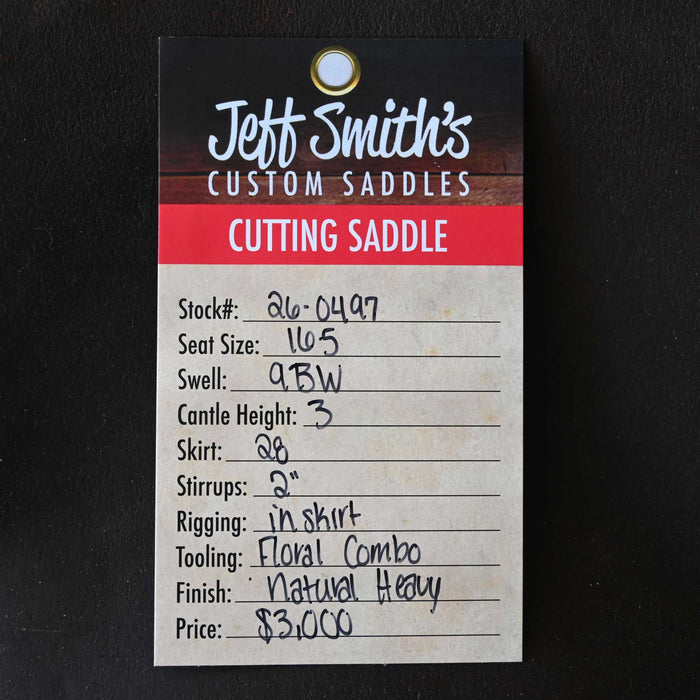 Jeff Smith's
CUSTOM SADDLES
CUTTING SADDLE
Stock#: 26-0497
Seat Size: 165
Swell: 9BW
Cantle Height: 3
Skirt: 28
Stirrups: 2"
Rigging: in skirt
Tooling: Floral Combo
Finish: Natural Heavy
Price: $3,000